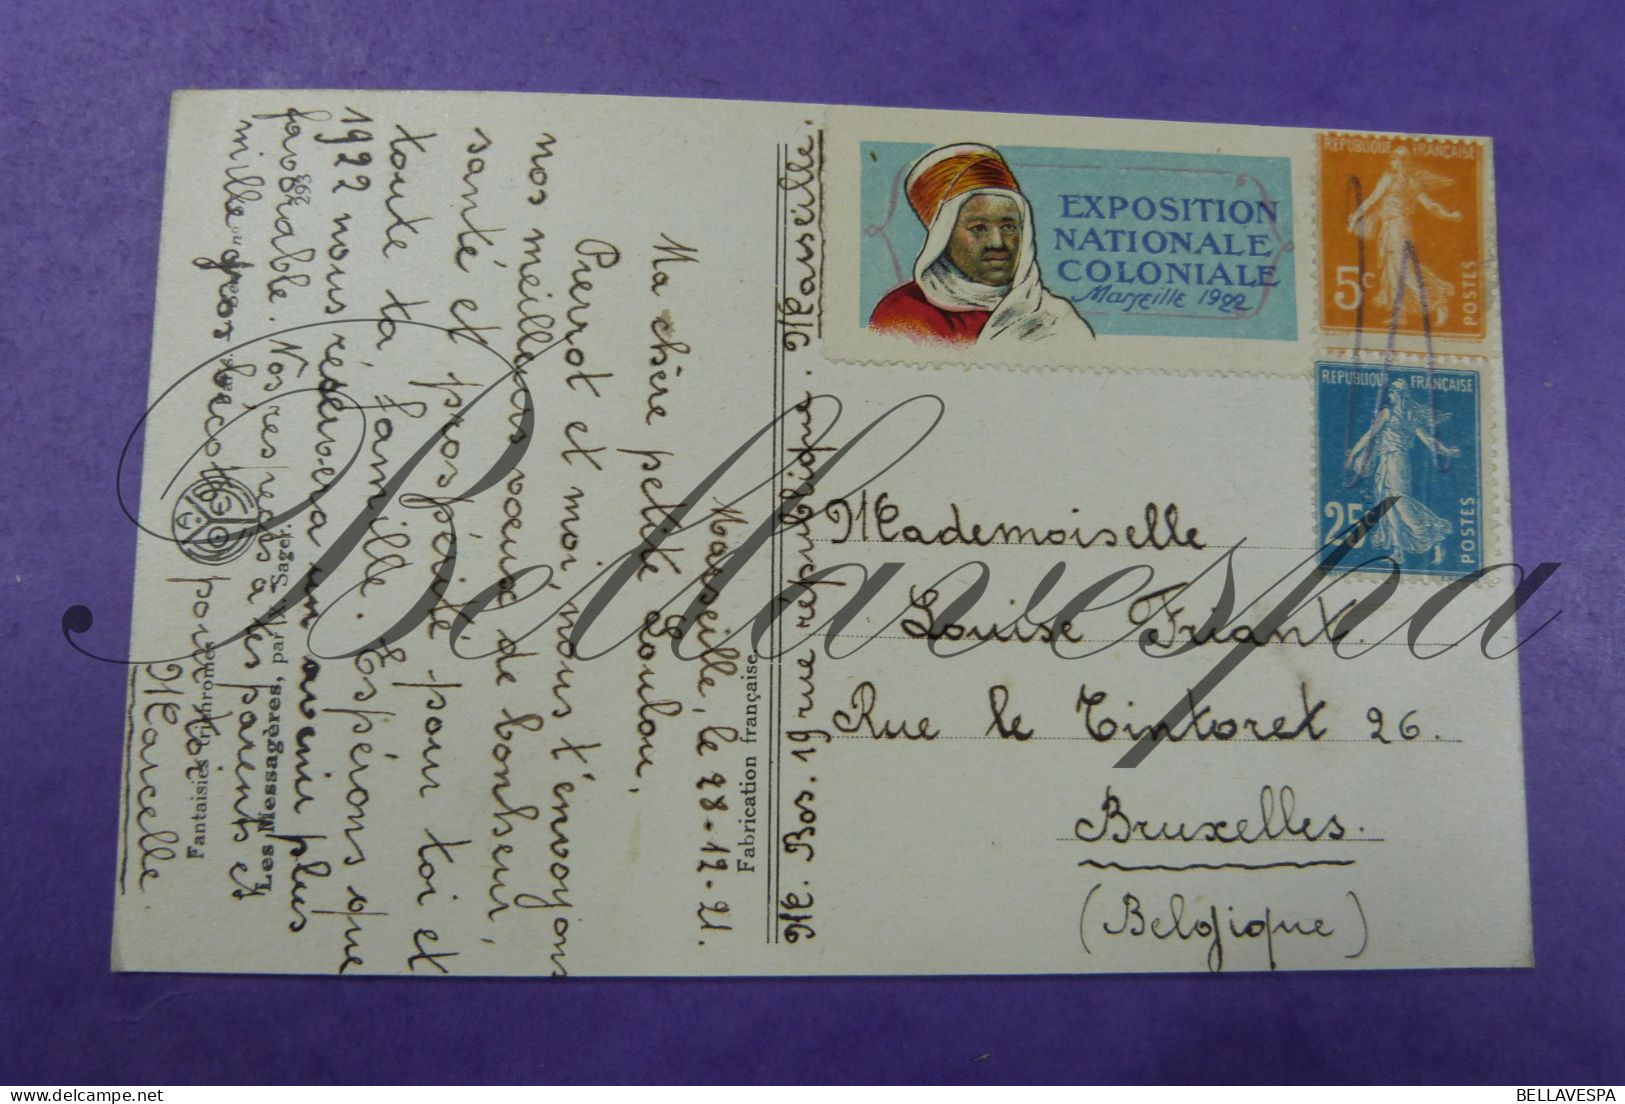 Marseille, le 28-12-21.
Ma chère petite Loulou,
Pierrot et moi, nous t'envoyons
nos meilleurs vœux de bonheur,
santé et prospérité pour toi et
toute ta famille. Espérons que
1922 nous réservera un avenir plus
favorable. Nos respects à tes parents et
mille gros bécots pour toi
Marcelle
Fabrication française
Les Messagères, par X. Sager.
Fantaisies Trichromes
M. Bos. 19 rue république. Marseille.
EXPOSITION
NATIONALE
COLONIALE
Marseille 1922
REPUBLIQUE FRANÇAISE
5c
POSTES
REPUBLIQUE FRANÇAISE
25c
POSTES
Mademoiselle
Louise Friant.
Rue le Tintoret 26.
Bruxelles.
(Belgique)
Bellavespa
BELLAVESPA